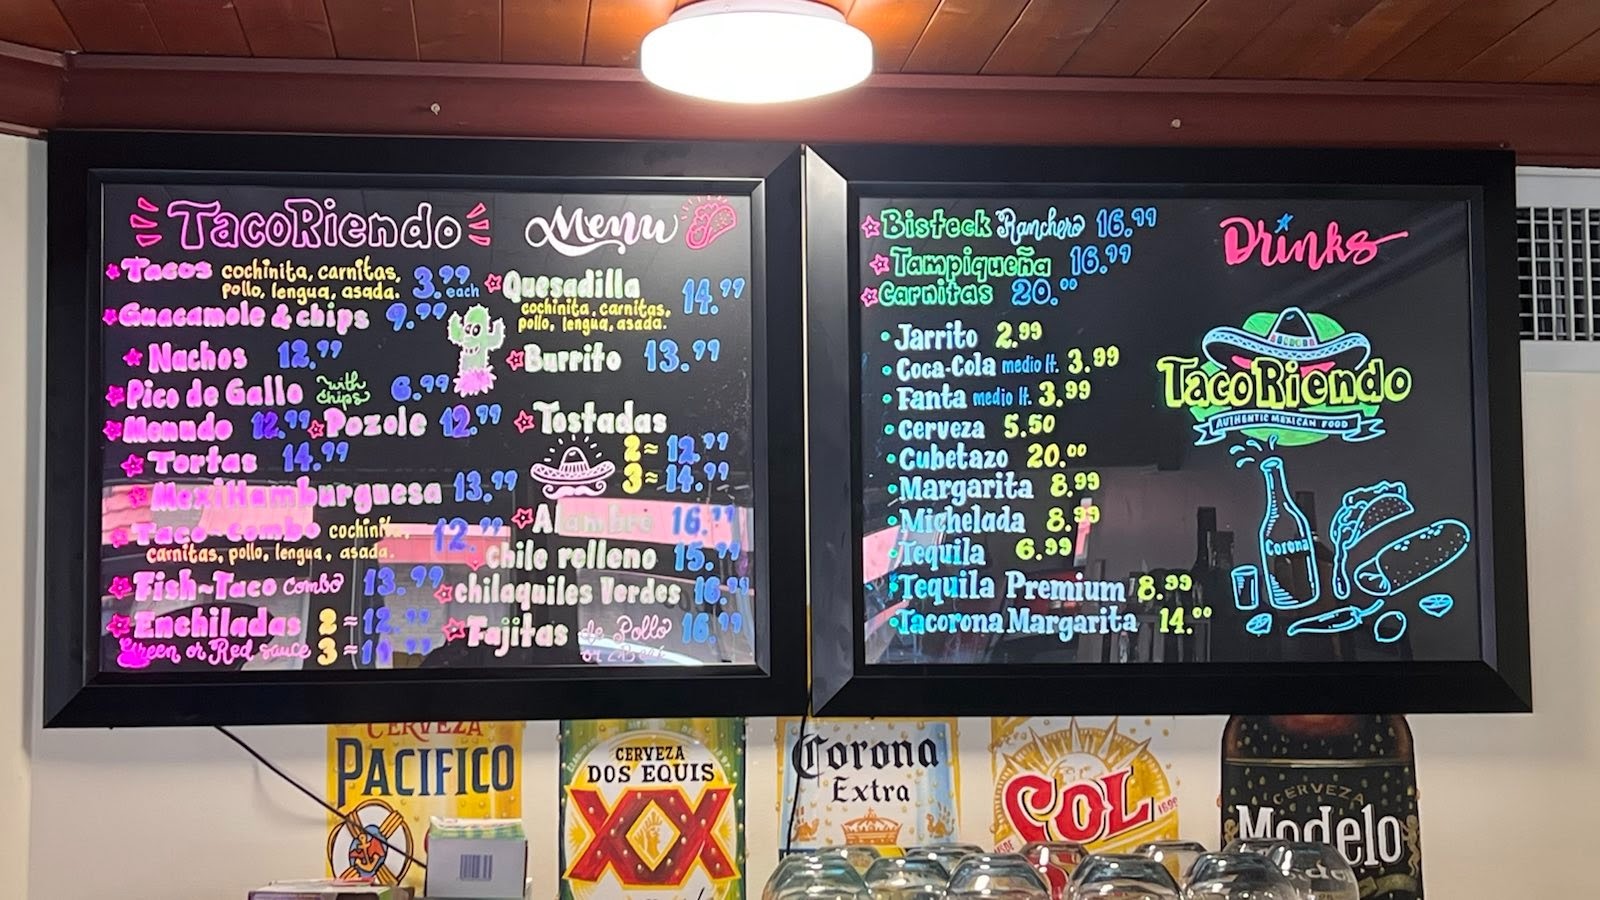 TacoRiendo Menu
Tacos cochinita, carnitas, pollo, lengua, asada. 3.99 each
Guacamole & chips 9.99
Nachos 12.99
Pico de Gallo with chips 6.99
Menudo 12.99 Pozole 12.99
Tortas 14.99
MexiHamburguesa 13.99
Taco-Combo cochinita, carnitas, pollo, lengua, asada. 12.99
Fish~Taco Combo 13.99
Enchiladas 2 = 12.99
Green or Red sauce 3 =
Quesadilla 14.99
cochinita, carnitas,
pollo, lengua, asada.
Burrito 13.99
Tostadas
2 = 12.99
3 = 14.99
Alambre 16.99
chile relleno 15.99
chilaquiles Verdes 16.99
Fajitas de Pollo 16.99
or
Bisteck Ranchero 16.99
Tampiqueña 16.99
Carnitas 20.00
Drinks
Jarrito 2.99
Coca-Cola medio lt. 3.99
Fanta medio lt. 3.99
Cerveza 5.50
Cubetazo 20.00
Margarita 8.99
Michelada 8.99
Tequila 6.99
Tequila Premium 8.99
Tacorona Margarita 14.00
TacoRiendo
AUTHENTIC MEXICAN FOOD
Corona
CERVEZA
PACIFICO
CERVEZA
DOS EQUIS
XX
Corona
Extra
SOL
1899
CERVEZA
Modelo